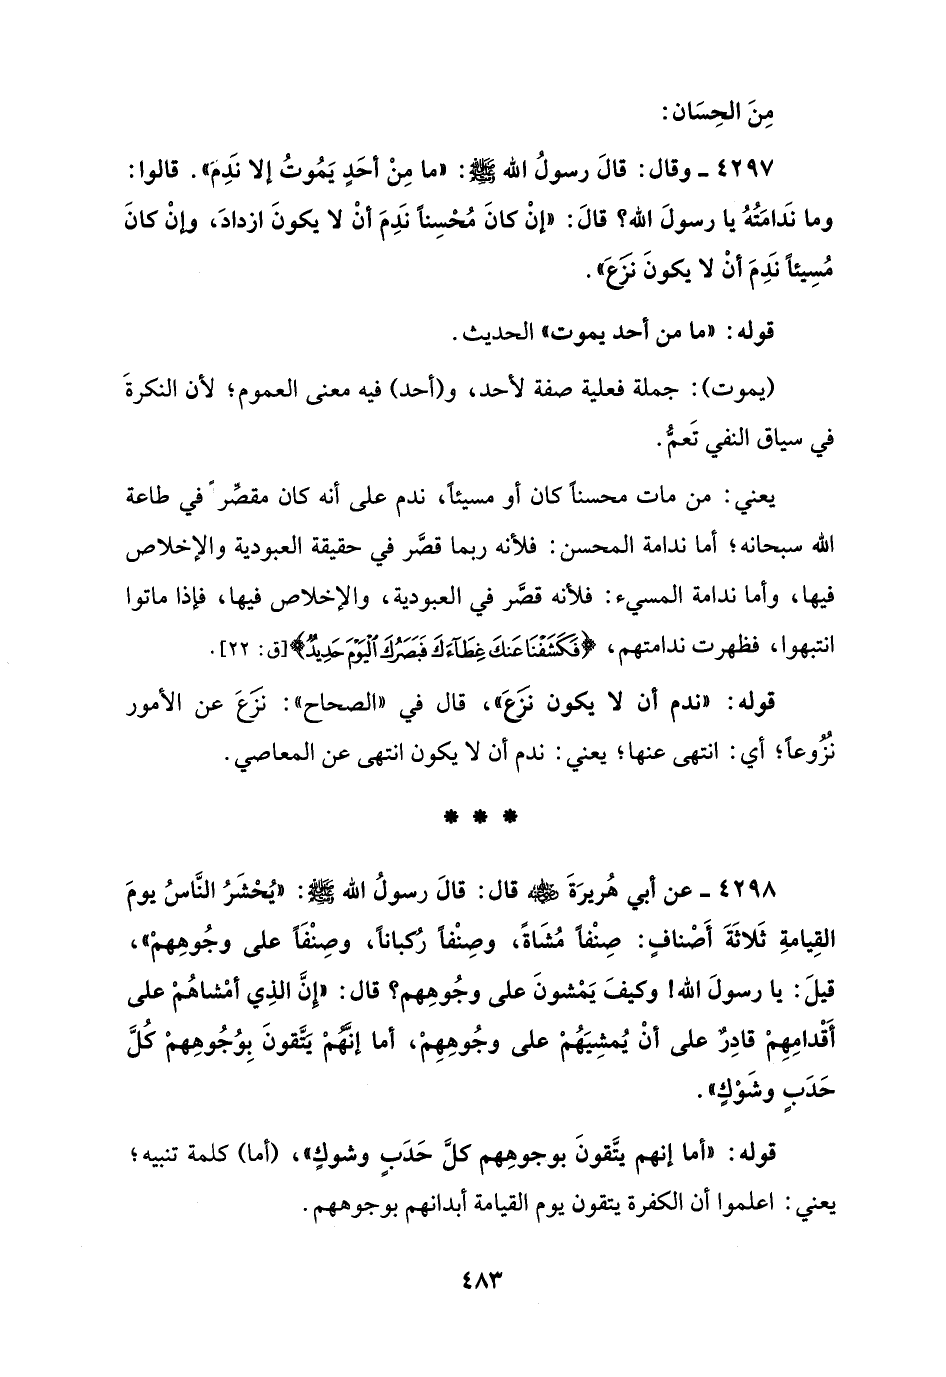 مِنَ الحِسَان:
٤٢٩٧ ـ وقال: قالَ رسولُ الله ﷺ: «ما مِنْ أحَدٍ يَمُوتُ إلا نَدِمَ». قالوا:
وما نَدامَتُهُ يا رسولَ الله؟ قالَ: «إنْ كانَ مُحْسِناً نَدِمَ أنْ لا يكونَ ازدادَ، وإنْ كانَ
مُسِيئاً نَدِمَ أنْ لا يكونَ نَزَعَ».
قوله: «ما من أحد يموت» الحديث.
(يموت): جملة فعلية صفة لأحد، و(أحد) فيه معنى العموم؛ لأن النكرةَ
في سياق النفي تَعمُّ.
يعني: من مات محسناً كان أو مسيئاً، ندم على أنه كان مقصِّر ً في طاعة
الله سبحانه؛ أما ندامة المحسن: فلأنه ربما قصَّر في حقيقة العبودية والإخلاص
فيها، وأما ندامة المسيء: فلأنه قصَّر في العبودية، والإخلاص فيها، فإذا ماتوا
انتبهوا، فظهرت ندامتهم، ﴿فَكَشَفْنَا عَنكَ غِطَآءَكَ فَبَصَرُكَ ٱلْيَوْمَ حَدِيدٌ﴾[ق: ٢٢].
قوله: «ندم أن لا يكون نزَعَ»، قال في «الصحاح»: نزَعَ عن الأمور
نزُوعاً؛ أي: انتهى عنها؛ يعني: ندم أن لا يكون انتهى عن المعاصي.
* * *
٤٢٩٨ ـ عن أبي هُريرَةَ ﷺ قال: قالَ رسولُ الله ﷺ: «يُحْشَرُ النَّاسُ يومَ
القِيامةِ ثَلاثَةَ أَصْنافٍ: صِنْفاً مُشَاةً، وصِنْفاً رُكباناً، وصِنْفَاً على وجُوهِهمْ»،
قيلَ: يا رسولَ الله! وكيفَ يَمْشونَ على وجُوهِهم؟ قال: «إنَّ الذِي أمْشاهُمْ على
أَقْدامِهِمْ قادِرٌ على أنْ يُمشِيَهُمْ على وجُوهِهِمْ، أما إنَّهُمْ يَتَّقونَ بِوُجُوهِهمْ كُلَّ
حَدَبٍ وشَوْكٍ».
قوله: «أما إنهم يتَّقونَ بوجوهِهم كلَّ حَدَبٍ وشوكٍ»، (أما) كلمة تنبيه؛
يعني: اعلموا أن الكفرة يتقون يوم القيامة أبدانهم بوجوههم.
٤٨٣